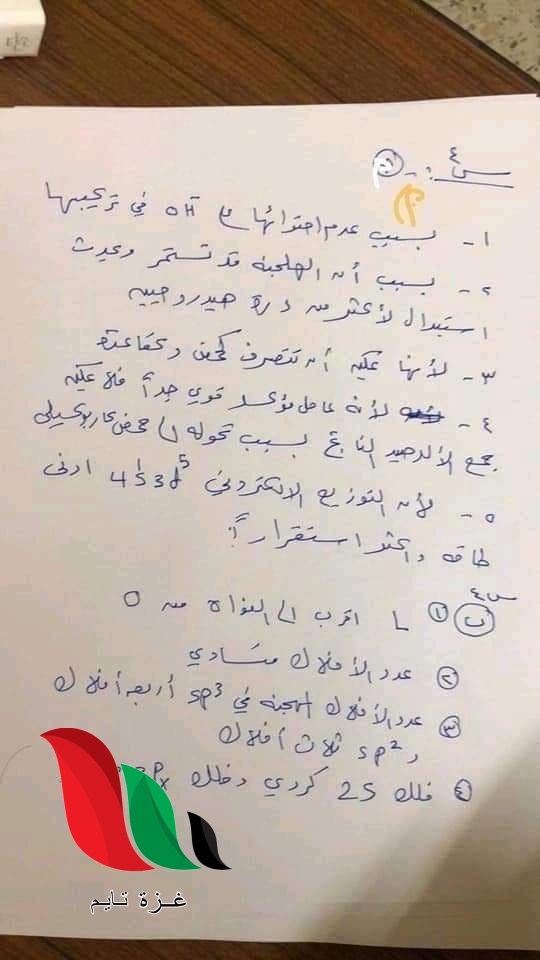 س٤ :- أ
١- بسبب عدم احتوائها على OH في تركيبها
٢- بسبب أن الهلجنة قد تستمر ويحدث
استبدال لأكثر من ذرة هيدروجين
٣- لأنها يمكن أن تتصرف كحمض وكقاعدة
٤- لأنه عامل مؤكسد قوي جداً فلا يمكن
جمع الألدهيد الناتج بسبب تحوله الى حمض كاربوكسيلي
٥- لأن التوزيع الالكتروني 4s¹3d⁵ ادنى
طاقة وأكثر استقراراً
س٤
ب ① L اقرب الى النواة من O
② عدد الأفلاك متساوي
③ عدد الأفلاك المهجنة في sp³ أربعة أفلاك
و sp² ثلاث أفلاك
④ فلك 2S كروي وفلك Px
غـزة تـايـم